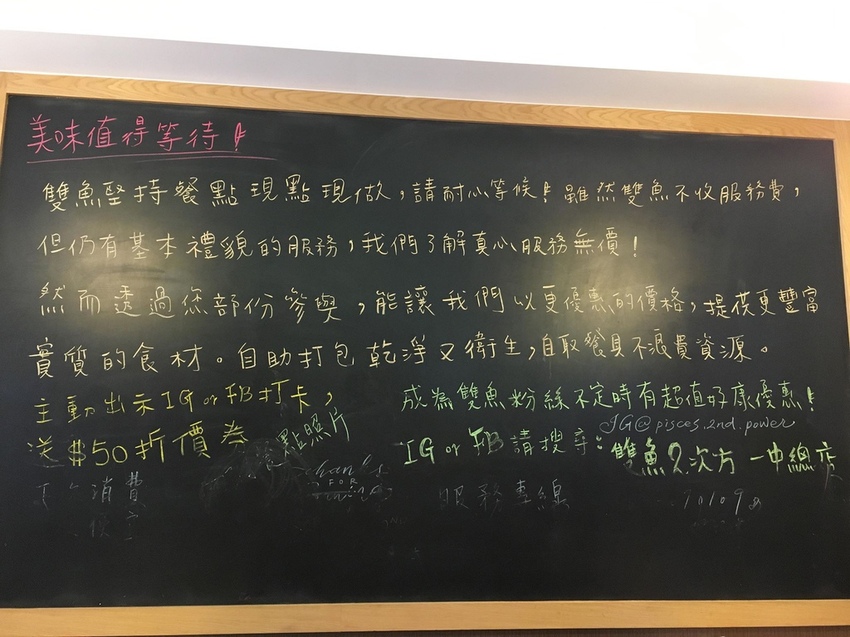 美味值得等待!
雙魚堅持餐點現點現做，請耐心等候!雖然雙魚不收服務費，
但仍有基本禮貌的服務，我們了解真心服務無價!
然而透過您部份參與，能讓我們以更優惠的價格，提供更豐富
實質的食材。自助打包乾淨又衛生，自取餐具不浪費資源。
主動出示IG or FB打卡，
送$50折價券
點照片
成為雙魚粉絲不定時有超值好康優惠!
IG@pisces.2nd.power
IG or FB請搜尋:雙魚2次方 一中總店
消費
thanks
FOR
服務專線